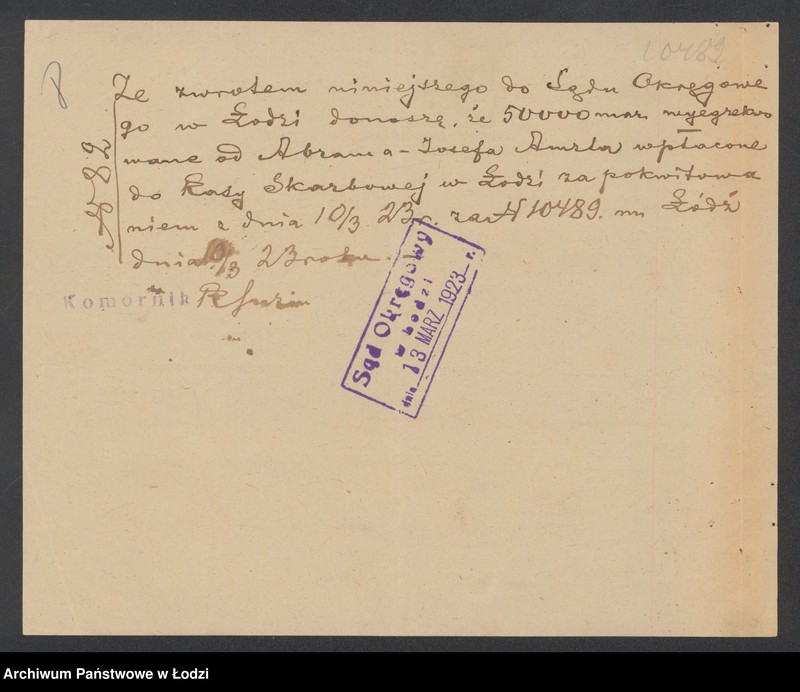 10489
8
Ze zwrotem niniejszego do Sądu Okręgowe
go w Łodzi donoszę, że 50000 mar. wyegzekwo
wane od Abrama-Josefa Amzla wpłacone
do Kasy Skarbowej w Łodzi za pokwitowa
niem z dnia 10/3 23 r. za N 10489. Łódź
dnia 10/3 23 roku.
N 82
Komornik
Sąd Okręgowy
w Łodzi
dnia 13 MARZ 1923 r.
Archiwum Państwowe w Łodzi